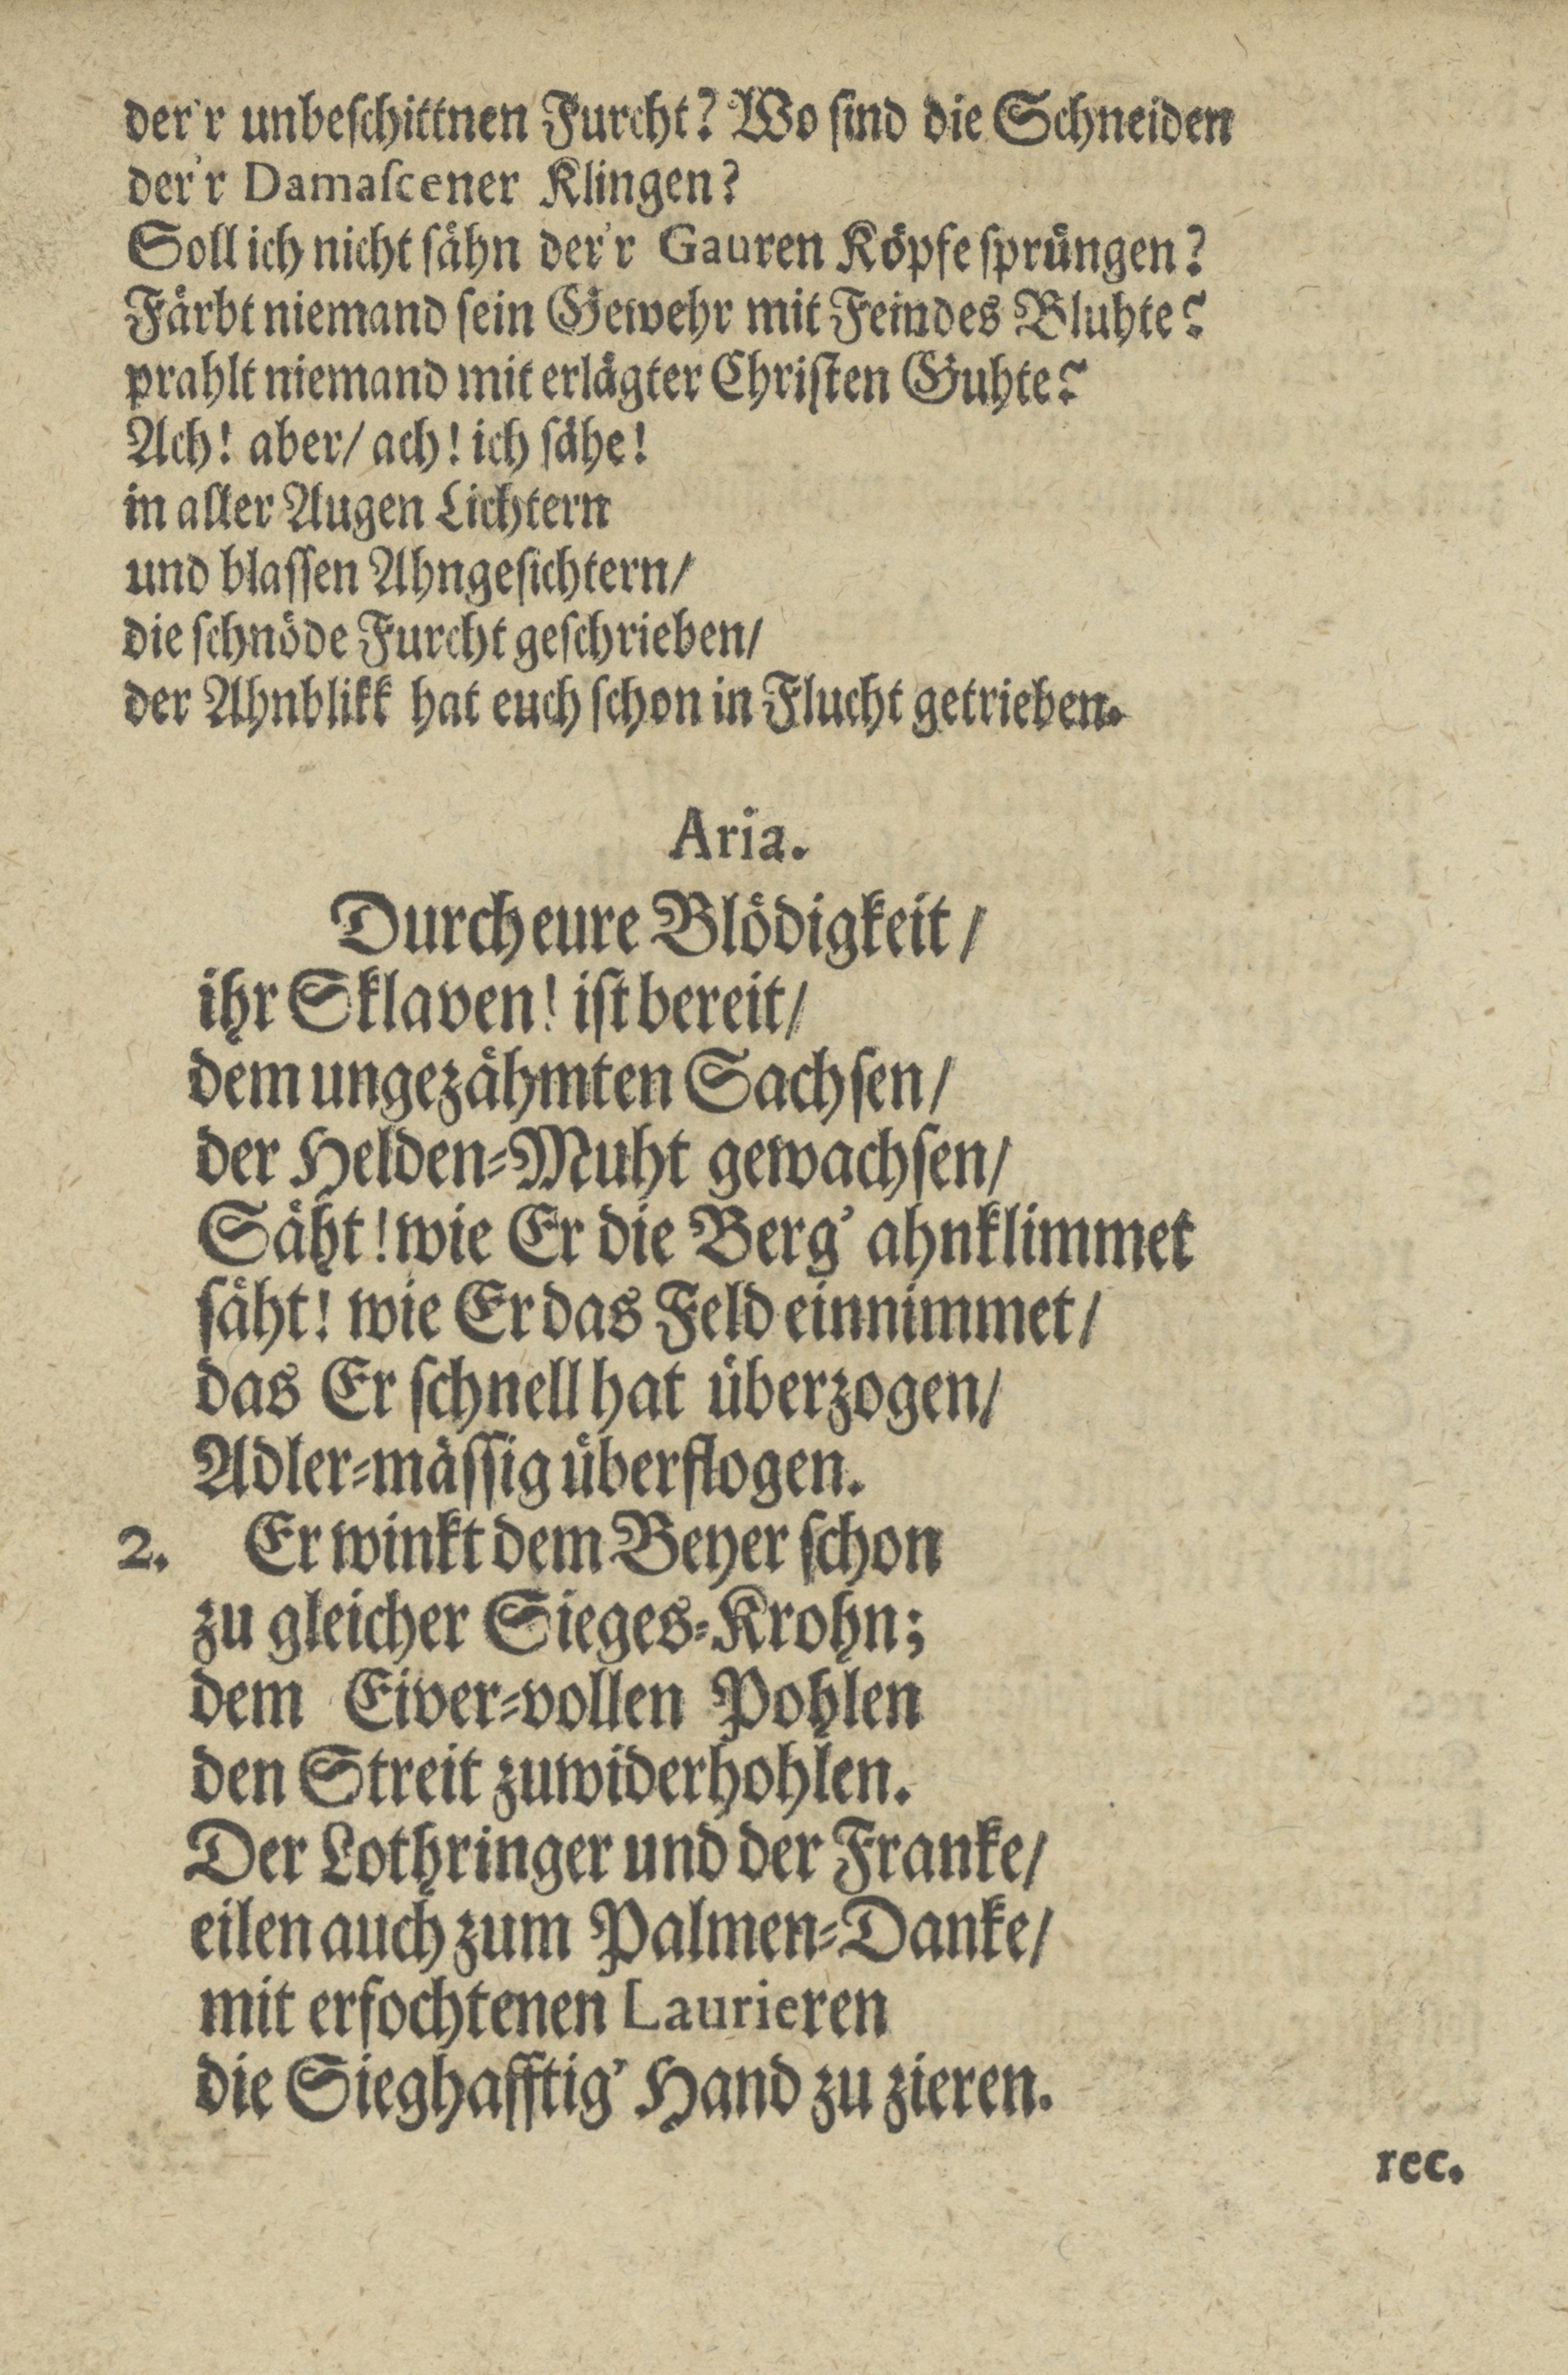 der'r unbeſchittnen Furcht? Wo ſind die Schneiden
der'r Damaſcener Klingen?
Soll ich nicht ſaͤhn der'r Gauren Koͤpfe ſpruͤngen?
Faͤrbt niemand ſein Gewehr mit Feindes Bluhte?
prahlt niemand mit erlaͤgter Chriſten Guhte?
Ach! aber/ ach! ich ſaͤhe!
in aller Augen Lichtern
und blaſſen Ahngeſichtern/
die ſchnoͤde Furcht geſchrieben/
der Ahnblikk hat euch ſchon in Flucht getrieben.
Aria.
Durch eure Bloͤdigkeit/
ihr Sklaven! iſt bereit/
dem ungezaͤhmten Sachſen/
der Helden-Muht gewachſen/
Saͤht! wie Er die Berg' ahnklimmet
ſaͤht! wie Er das Feld einnimmet/
das Er ſchnell hat uͤberzogen/
Adler-maͤſſig uͤberflogen.
2. Er winkt dem Beyer ſchon
zu gleicher Sieges-Krohn;
dem Eiver-vollen Pohlen
den Streit zuwiderhohlen.
Der Lothringer und der Franke/
eilen auch zum Palmen-Danke/
mit erfochtenen Laurieren
die Sieghafftig' Hand zu zieren.
rec.